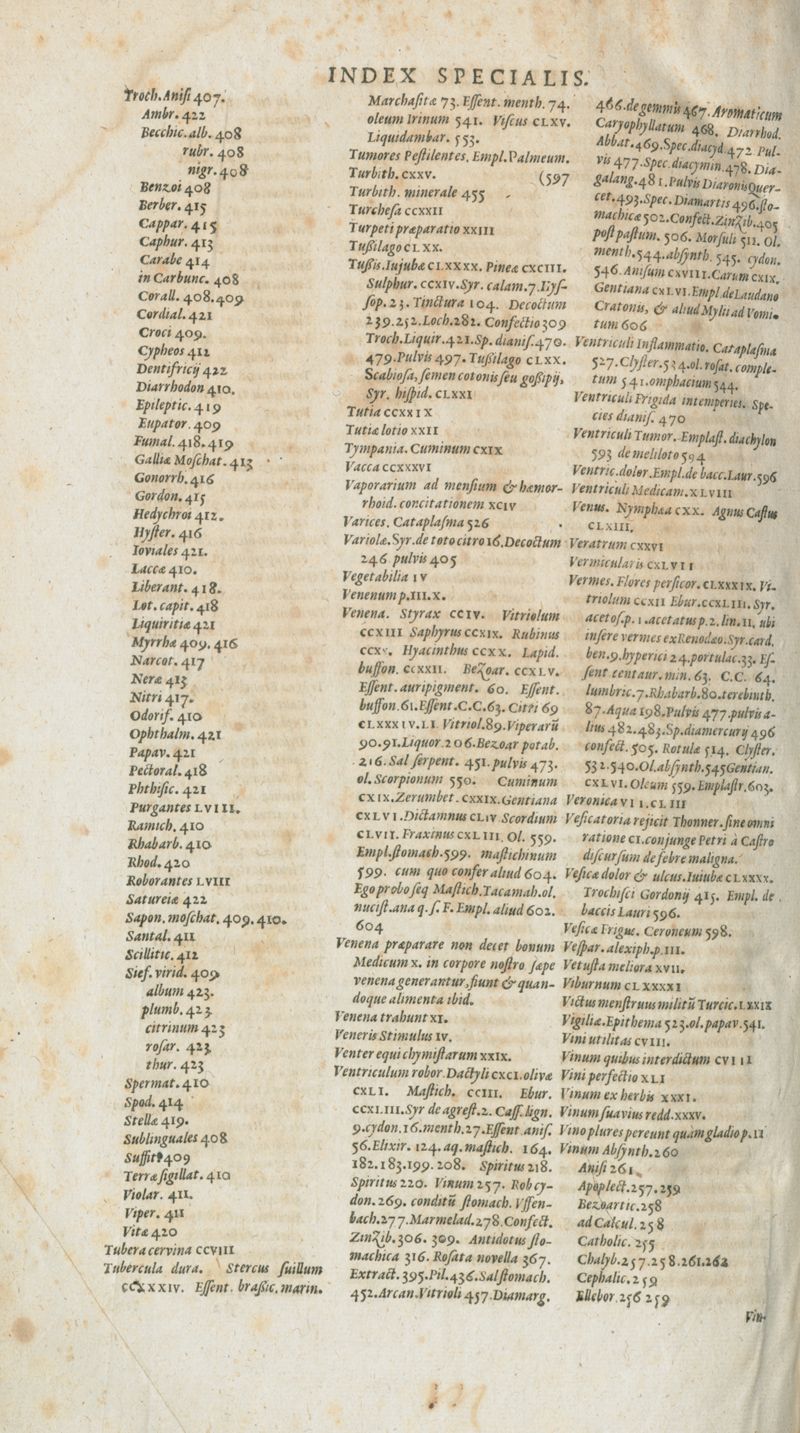 INDEX SPECIALIS.
Troch. Anisi 407.
Ambr. 422
Becchic. alb. 408
rubr. 408
nigr. 408
Benzoi 408
Berber. 415
Cappar. 415
Caphur. 413
Carabe 414
in Carbunc. 408
Corall. 408. 409
Cordial. 421
Croci 409.
Cypheos 412
Dentifricij 422
Diarrhodon 410.
Epileptic. 419
Eupator. 409
Fumal. 418. 419
Galliæ Moschat. 413
Gonorrh. 416
Gordon. 415
Hedychroi 412.
Hyster. 416
Ioviales 421.
Laccæ 410.
Liberant. 418.
Lot. capit. 418
Liquiritiæ 421
Myrrhæ 409. 416
Narcot. 417
Neræ 413
Nitri 417.
Odorif. 410
Ophthalm. 421
Papav. 421
Pectoral. 418
Phthisic. 421
Purgantes LVIII.
Ramich. 410
Rhabarb. 410
Rhod. 420
Roborantes LVIII
Satureiæ 422
Sapon. moschat. 409. 410.
Santal. 411
Scillitic. 412
Sief. virid. 409
album 423.
plumb. 423
citrinum 423
rosar. 423
thur. 423
Spermat. 410
Spod. 414
Stellæ 419.
Sublinguales 408
Suffit 409
Terræ sigillat. 410
Violar. 411.
Viper. 411
Vitæ 420
Tubera cervina CCVIII
Tubercula dura. Stercus suillum
XXIV. Essent. brassic. marin.
Marchasitæ 73. Essent. menth. 74.
oleum Irinum 541. Viscus CLXV.
Liquidambar. 553.
Tumores Pestilentes. Empl. Palmeum.
Turbith. CXXV. (597
Turbith. minerale 455
Turchesa CCXXII
Turpeti præparatio XXIII
Tussilago CLXX.
Tussis. Iujubæ CLXXXX. Pineæ CXCIII.
Sulphur. CCXIV. Syr. calam. 7. Hys-
sop. 23. Tincturæ 104. Decoctum
239. 252. Loch. 282. Confectio 309
Troch. Liquir. 421. Sp. dianis. 470.
479. Pulvis 497. Tussilago CLXX.
Scabiosa, semen cotonis seu gossipij,
Syr. hispid. CLXXI
Tutia CCXXIX
Tutiæ lotio XXII
Tympania. Cuminum CXIX
Vacca CCXXXVI
Vaporarium ad mensium & hæmor-
rhoid. concitationem XCIV
Varices. Cataplasma 526
Variolæ. Syr. de toto citro 16. Decoctum
246 pulvis 405
Vegetabilia IV
Venenum p. III. X.
Venena. Styrax CCIV. Vitriolum
CCXIII Saphyrus CCXIX. Rubinus
CCXX. Hyacinthus CCXX. Lapid.
buffon. CCXXII. Bezoar. CCXLV.
Essent. auripigment. 60. Essent.
buffon. 61. Essent. C.C. 63. Citri 69
CLXXXIV. LI Vitriol. 89. Viperarũ
90. 91. Liquor. 206. Bezoar potab.
216. Sal serpent. 451. pulvis 473.
ol. Scorpionum 550. Cuminum
CXIX. Zerumbet. CXXIX. Gentiana
CXLVI. Dictamnus CLIV Scordium
CLVII. Fraxinus CXLIII. Ol. 559.
Empl. stomach. 599. mastichinum
599. cum quo confer aliud 604.
Ego probo seq Mastich. Tacamah. ol.
nucist. ana q. s. F. Empl. aliud 602.
604
Venena præparare non decet bonum
Medicum X. in corpore nostro sæpe
venena generantur, fiunt & quan-
doque alimenta ibid.
Venena trahunt XI.
Veneris Stimulus IV.
Venter equi chymistarum XXIX.
Ventriculum robor. Dactyli CXCI. olivæ
CXLI. Mastich. CCIII. Ebur.
CCXLIII. Syr de agrest. 2. Cass. lign.
9. cydon. 16. menth. 27. Essent anis.
56. Elixir. 124. aq. mastich. 164.
182. 183. 199. 208. Spiritus 218.
Spiritus 220. Vinum 257. Rob cy-
don. 269. conditũ stomach. Vssen-
bach. 277. Marmelad. 278. Confect.
Zinzib. 306. 309. Antidotus sto-
machica 316. Rosata novella 367.
Extract. 395. Pil. 436. Sal stomach.
452. Arcan. Vitrioli 457. Diamarg.
466. de gemmis 467. Aromaticum
Caryophyllatum 468. Diarrhod.
Abbat. 469. Spec. diacyd. 472 Pul-
vis 477. Spec. diacymin. 478. Dia-
galang. 481. Pulvis Diaronis Quer-
cet. 493. Spec. Diamartis 496. sto-
machicæ 502. Confect. Zinzib. 405
post pastum. 506. Morsuli 511. Ol.
menth. 544. absynth. 545. cydon.
546. Anisum CXVIII. Carum CXIX.
Gentiana CXLVI. Empl. de Laudano
Cratonis, & aliud Mylij ad Vomi-
tum 606
Ventriculi Inflammatio. Cataplasma
527. Clyster. 534. ol. rosat. comple-
tum 541. omphacium 544.
Ventriculi Frigida intemperies. Spe-
cies dianis. 470
Ventriculi Tumor. Emplast. diachylon
593 de meliloto 594
Ventric. dolor. Empl. de bacc. Laur. 596
Ventriculi Medicam. XLVIII
Venus. Nymphæa CXX. Agnus Castus
CLXIII.
Veratrum CXXVI
Vermicularis CXLVII
Vermes. Flores persicor. CLXXXIX. Vi-
triolum CCXII Ebur. CCXLIII. Syr.
acetos. p. 1. acetatus p. 2. lin. 11. ubi
insere vermes ex Renodæo. Syr. card.
ben. 9. hyperici 24. portulac. 33. Es-
sent centaur. min. 63. C.C. 64.
lumbric. 7. Rhabarb. 80. terebinth.
87. Aqua 198. Pulvis 477. pulvis a-
lius 482. 483. Sp. diamercurij 496
confect. 505. Rotulæ 514. Clyster.
532. 540. Ol. absynth. 545 Gentian.
CXLVI. Oleum 559. Emplastr. 603.
Veronica VII. CLIII
Vesicatoria rejicit Thonner. sine omni
ratione CI. conjunge Petri à Castro
discursum de febre maligna.
Vesicæ dolor & ulcus. Iuiubæ CLXXXX.
Trochisci Gordonij 415. Empl. de
baccis Lauri 596.
Vesicæ Frigus. Ceroneum 598.
Vespar. alexiph. p. III.
Vetusta meliora XVII.
Viburnum CLXXXXI
Victus menstruus militũ Turcic. LXXIX
Vigiliæ. Epithema 523. ol. papav. 541.
Vini utilitas CVIII.
Vinum quibus interdictum CVIII
Vini perfectio XLI
Vinum ex herbis XXXI.
Vinum suavius redd. XXXV.
Vino plures pereunt quam gladio p. II
Vinum Absynth. 260
Anisi 261
Apoplect. 257. 259
Bezoartic. 258
ad Calcul. 258
Catholic. 255
Chalyb. 257. 258. 261. 262
Cephalic. 259
Ellebor. 256 259
Vin-